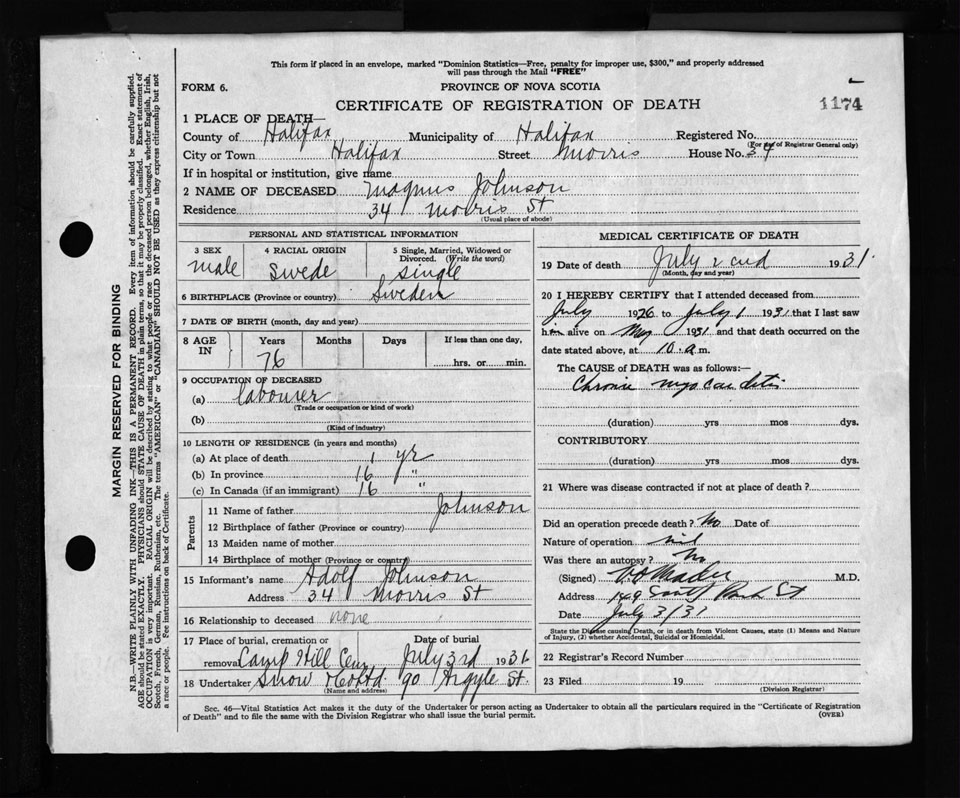 This form if placed in an envelope, marked "Dominion Statistics—Free, penalty for improper use, $300," and properly addressed
will pass through the Mail "FREE"
FORM 6.
PROVINCE OF NOVA SCOTIA
CERTIFICATE OF REGISTRATION OF DEATH
1174
1 PLACE OF DEATH—
County of Halifax Municipality of Halifax Registered No.
(For use of Registrar General only)
City or Town Halifax Street Morris House No. 34
If in hospital or institution, give name
2 NAME OF DECEASED Magnus Johnson
Residence 34 Morris St
(Usual place of abode)
PERSONAL AND STATISTICAL INFORMATION
3 SEX
male
4 RACIAL ORIGIN
Swede
5 Single, Married, Widowed or
Divorced. (Write the word)
single
6 BIRTHPLACE (Province or country) Sweden
7 DATE OF BIRTH (month, day and year)
8 AGE IN
Years Months Days If less than one day,
76 hrs. or min.
9 OCCUPATION OF DECEASED
(a) labourer
(Trade or occupation or kind of work)
(b)
(Kind of industry)
10 LENGTH OF RESIDENCE (in years and months)
(a) At place of death 1 yr
(b) In province 16 "
(c) In Canada (if an immigrant) 16 "
Parents
11 Name of father Johnson
12 Birthplace of father (Province or country)
13 Maiden name of mother
14 Birthplace of mother (Province or country)
15 Informant's name Adolf Johnson
Address 34 Morris St
16 Relationship to deceased none
17 Place of burial, cremation or Date of burial
removal Camp Hill Cem July 3rd 1931
18 Undertaker Snow & Co Ltd 90 Argyle St.
(Name and address)
MEDICAL CERTIFICATE OF DEATH
19 Date of death July 2nd 1931
(Month, day and year)
20 I HEREBY CERTIFY that I attended deceased from
July 1926 to July 1 1931 that I last saw
him alive on May 1931 and that death occurred on the
date stated above, at 10.a m.
The CAUSE of DEATH was as follows:—
Chronic myocarditis
(duration) yrs mos dys.
CONTRIBUTORY
(duration) yrs mos dys.
21 Where was disease contracted if not at place of death?
Did an operation precede death? No Date of
Nature of operation nil
Was there an autopsy? No
(Signed) M.D.
Address 149 South Park St
Date July 3/31
State the Disease causing Death, or in death from Violent Causes, state (1) Means and Nature
of Injury, (2) whether Accidental, Suicidal or Homicidal.
22 Registrar's Record Number
23 Filed 19
(Division Registrar)
Sec. 46—Vital Statistics Act makes it the duty of the Undertaker or person acting as Undertaker to obtain all the particulars required in the "Certificate of Registration
of Death" and to file the same with the Division Registrar who shall issue the burial permit.
(OVER)
MARGIN RESERVED FOR BINDING
N.B.—WRITE PLAINLY WITH UNFADING INK—THIS IS A PERMANENT RECORD. Every item of information should be carefully supplied.
AGE should be stated EXACTLY. PHYSICIANS should STATE CAUSE OF DEATH in plain terms, so that it may be properly classified. Exact statement of
OCCUPATION is very important. RACIAL ORIGIN will be described by stating to what people or race the deceased person belonged, whether English, Irish,
Scotch, French, German, Russian, Ruthenian, etc. The terms "AMERICAN" or "CANADIAN" SHOULD NOT BE USED as they express citizenship but not
a race or people. Fee instructions on back of Certificate.